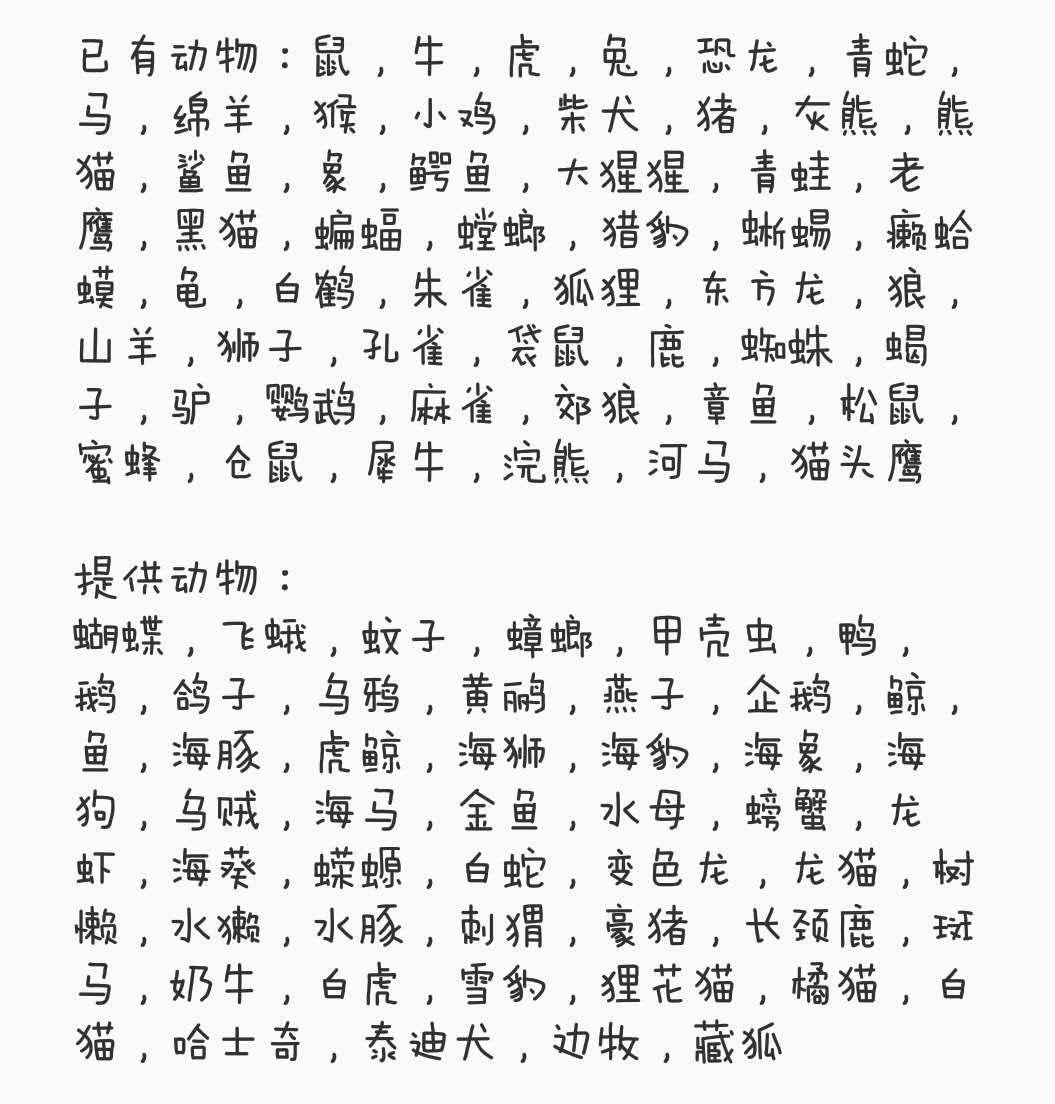 已有动物：鼠，牛，虎，兔，恐龙，青蛇，
马，绵羊，猴，小鸡，柴犬，猪，灰熊，熊
猫，鲨鱼，象，鳄鱼，大猩猩，青蛙，老
鹰，黑猫，蝙蝠，螳螂，猎豹，蜥蜴，癞蛤
蟆，龟，白鹤，朱雀，狐狸，东方龙，狼，
山羊，狮子，孔雀，袋鼠，鹿，蜘蛛，蝎
子，驴，鹦鹉，麻雀，郊狼，章鱼，松鼠，
蜜蜂，仓鼠，犀牛，浣熊，河马，猫头鹰
提供动物：
蝴蝶，飞蛾，蚊子，蟑螂，甲壳虫，鸭，
鹅，鸽子，乌鸦，黄鹂，燕子，企鹅，鲸，
鱼，海豚，虎鲸，海狮，海豹，海象，海
狗，乌贼，海马，金鱼，水母，螃蟹，龙
虾，海葵，蝾螈，白蛇，变色龙，龙猫，树
懒，水獭，水豚，刺猬，豪猪，长颈鹿，斑
马，奶牛，白虎，雪豹，狸花猫，橘猫，白
猫，哈士奇，泰迪犬，边牧，藏狐